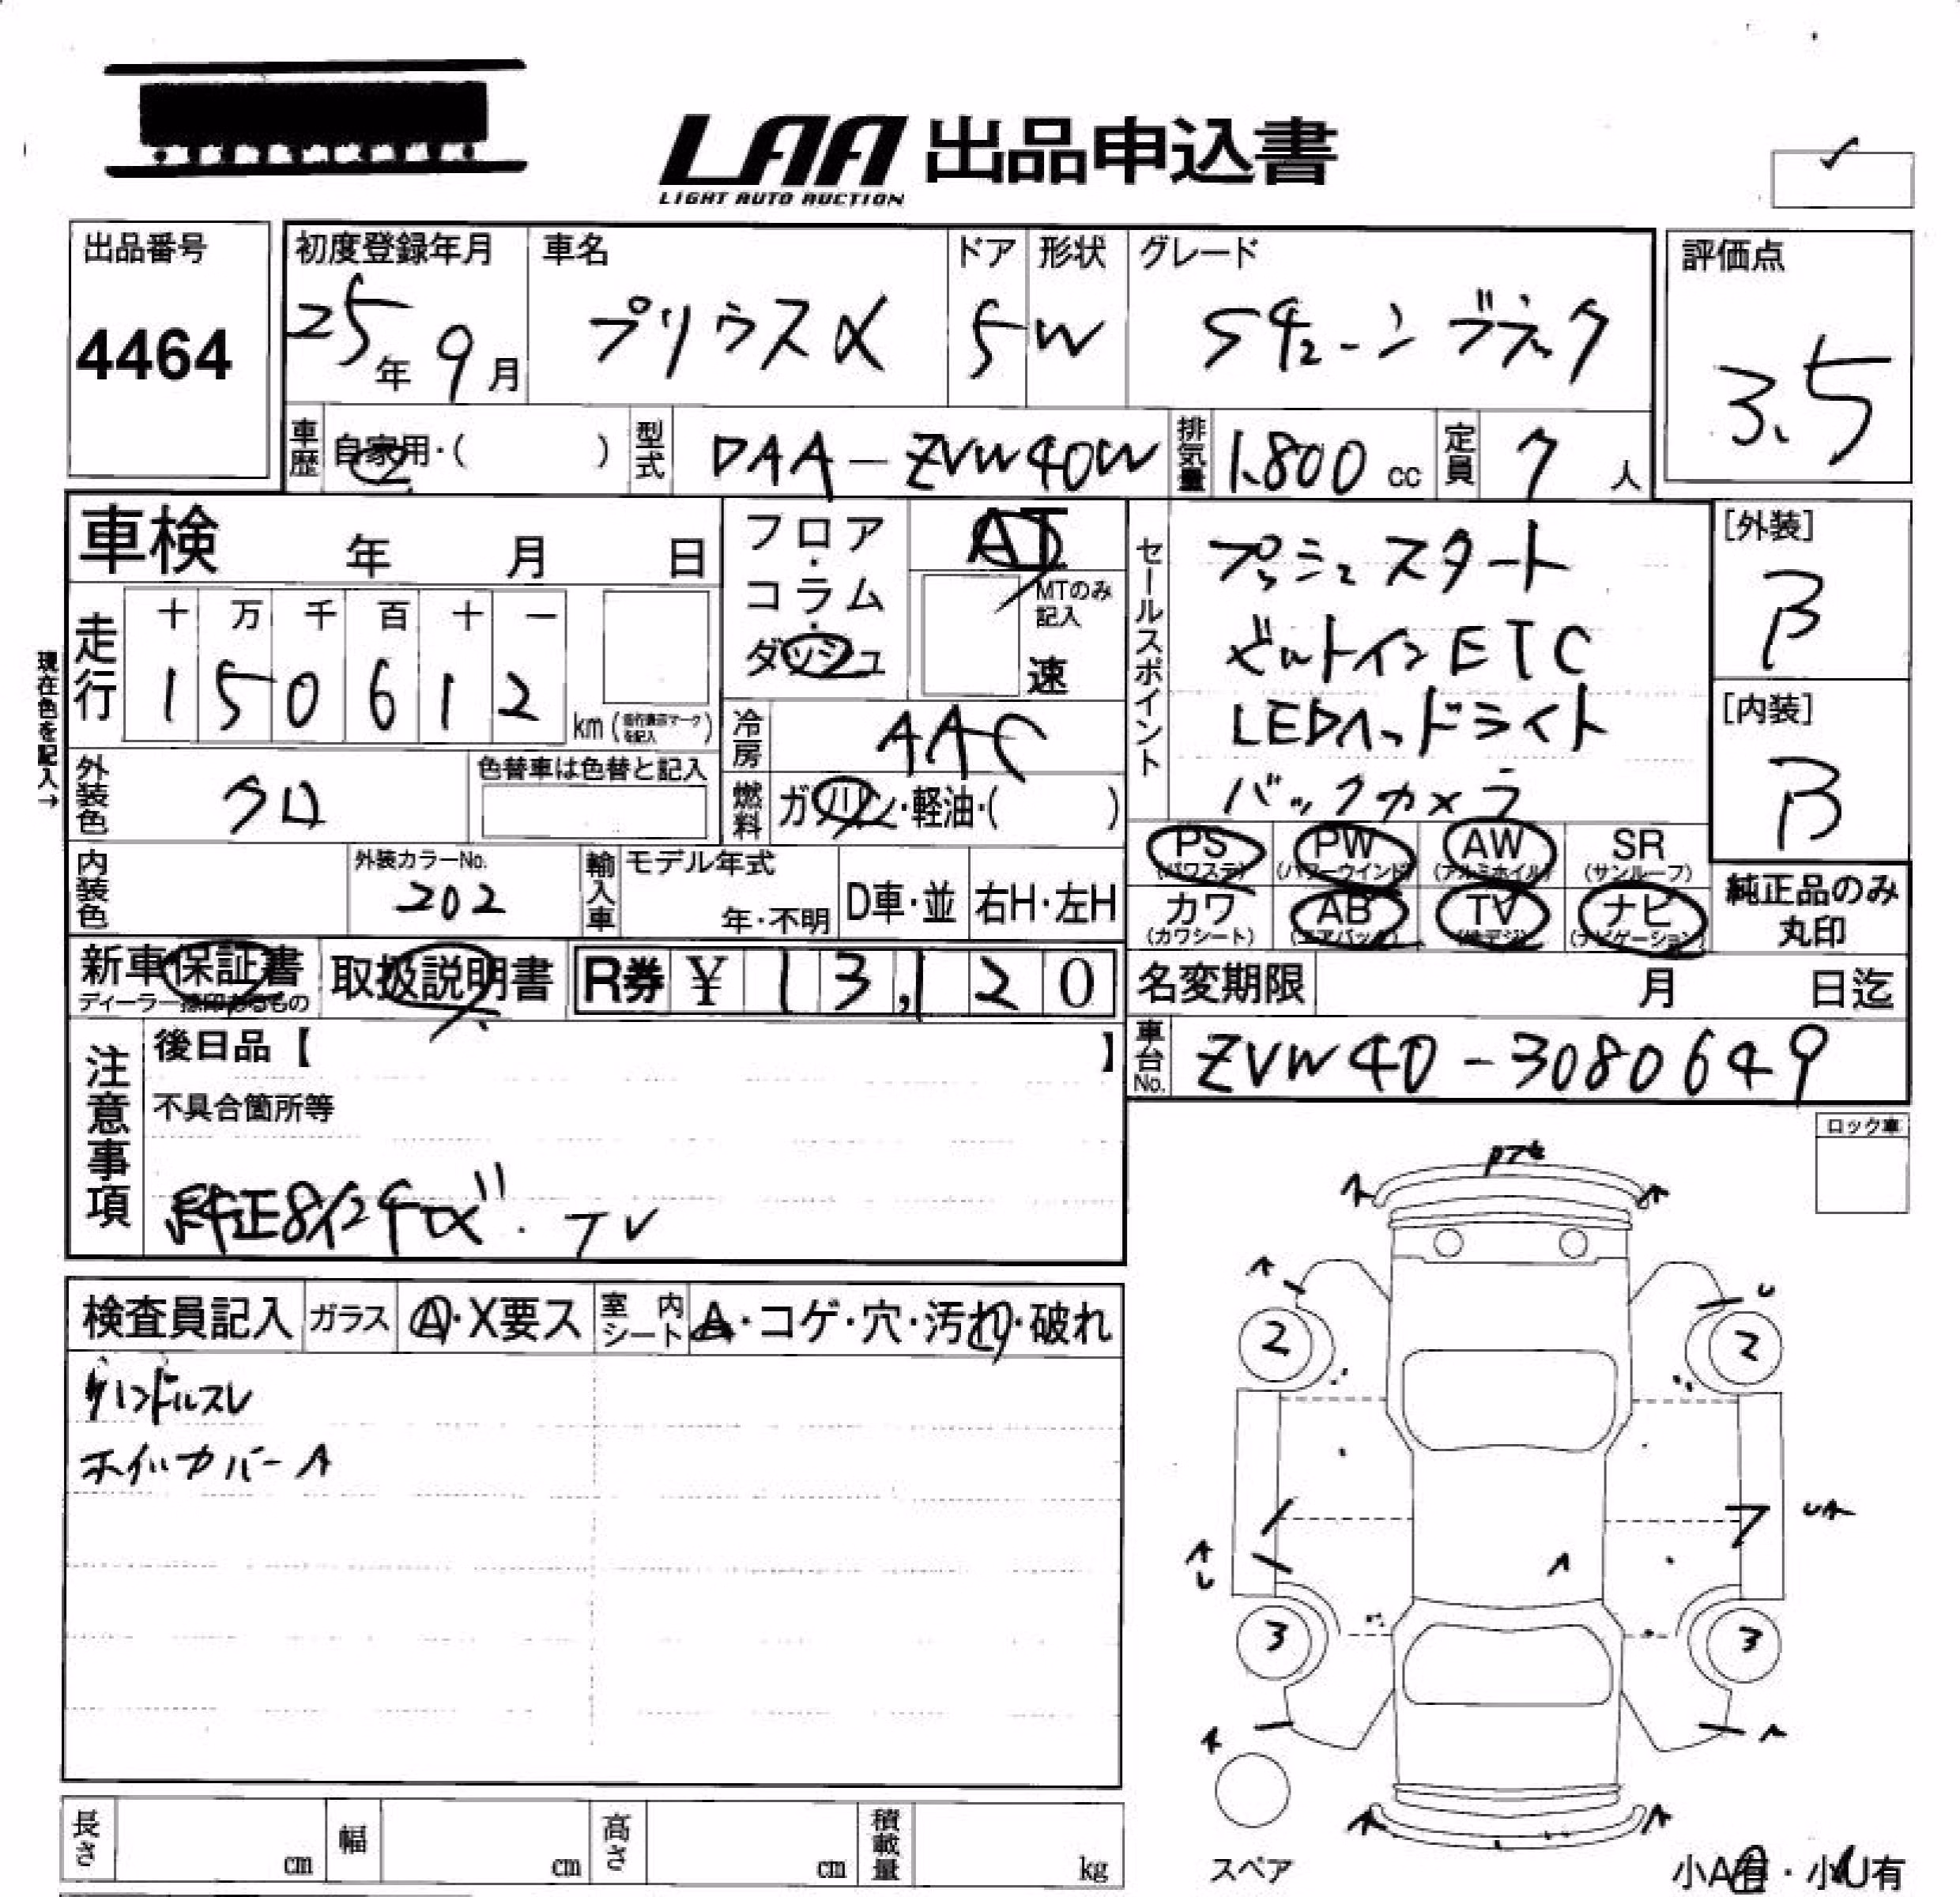 LAA 出品申込書
LIGHT AUTO AUCTION
出品番号
4464
初度登録年月
25年9月
車名
プリウスα
ドア
5
形状
W
グレード
Sチューンブラック
評価点
3.5
車歴
自家用・( )
型式
DAA-ZVW40W
排気量
1.800 cc
定員
7人
車検 年 月 日
フロア・コラム・ダッシュ
AT
MTのみ記入
速
現在色を記入→
走行
十 万 千 百 十 一
1 5 0 6 1 2 km
冷房
AAC
燃料
ガソリン・軽油・( )
外装色
クロ
色替車は色替と記入
内装色
外装カラーNo.
202
輸入車
モデル年式
年・不明
D車・並
右H・左H
セールスポイント
プッシュスタート
ビルトインETC
LEDヘッドライト
バックカメラ
[外装]
B
[内装]
B
PS (パワステ)
PW (パワーウインド)
AW (アルミホイル)
SR (サンルーフ)
カワ (カワシート)
AB (エアバック)
TV (地デジ)
ナビ (ナビゲーション)
純正品のみ丸印
新車保証書
ディーラー捺印あるもの
取扱説明書
R券 ¥ 13,120
名変期限 月 日迄
車台No.
ZVW40-3080649
注意事項
後日品【 】
不具合箇所等
純正8インチナビ・TV
ロック車
検査員記入
ガラス
A・X要ス
室内シート
A・コゲ・穴・汚れ・破れ
ハンドルスレ
ホイルカバーA
A
A
A
U
2
2
UA
A
U
A
3
3
A
A
A
A
スペア
小A有・小U有
長さ cm
幅 cm
高さ cm
積載量 kg